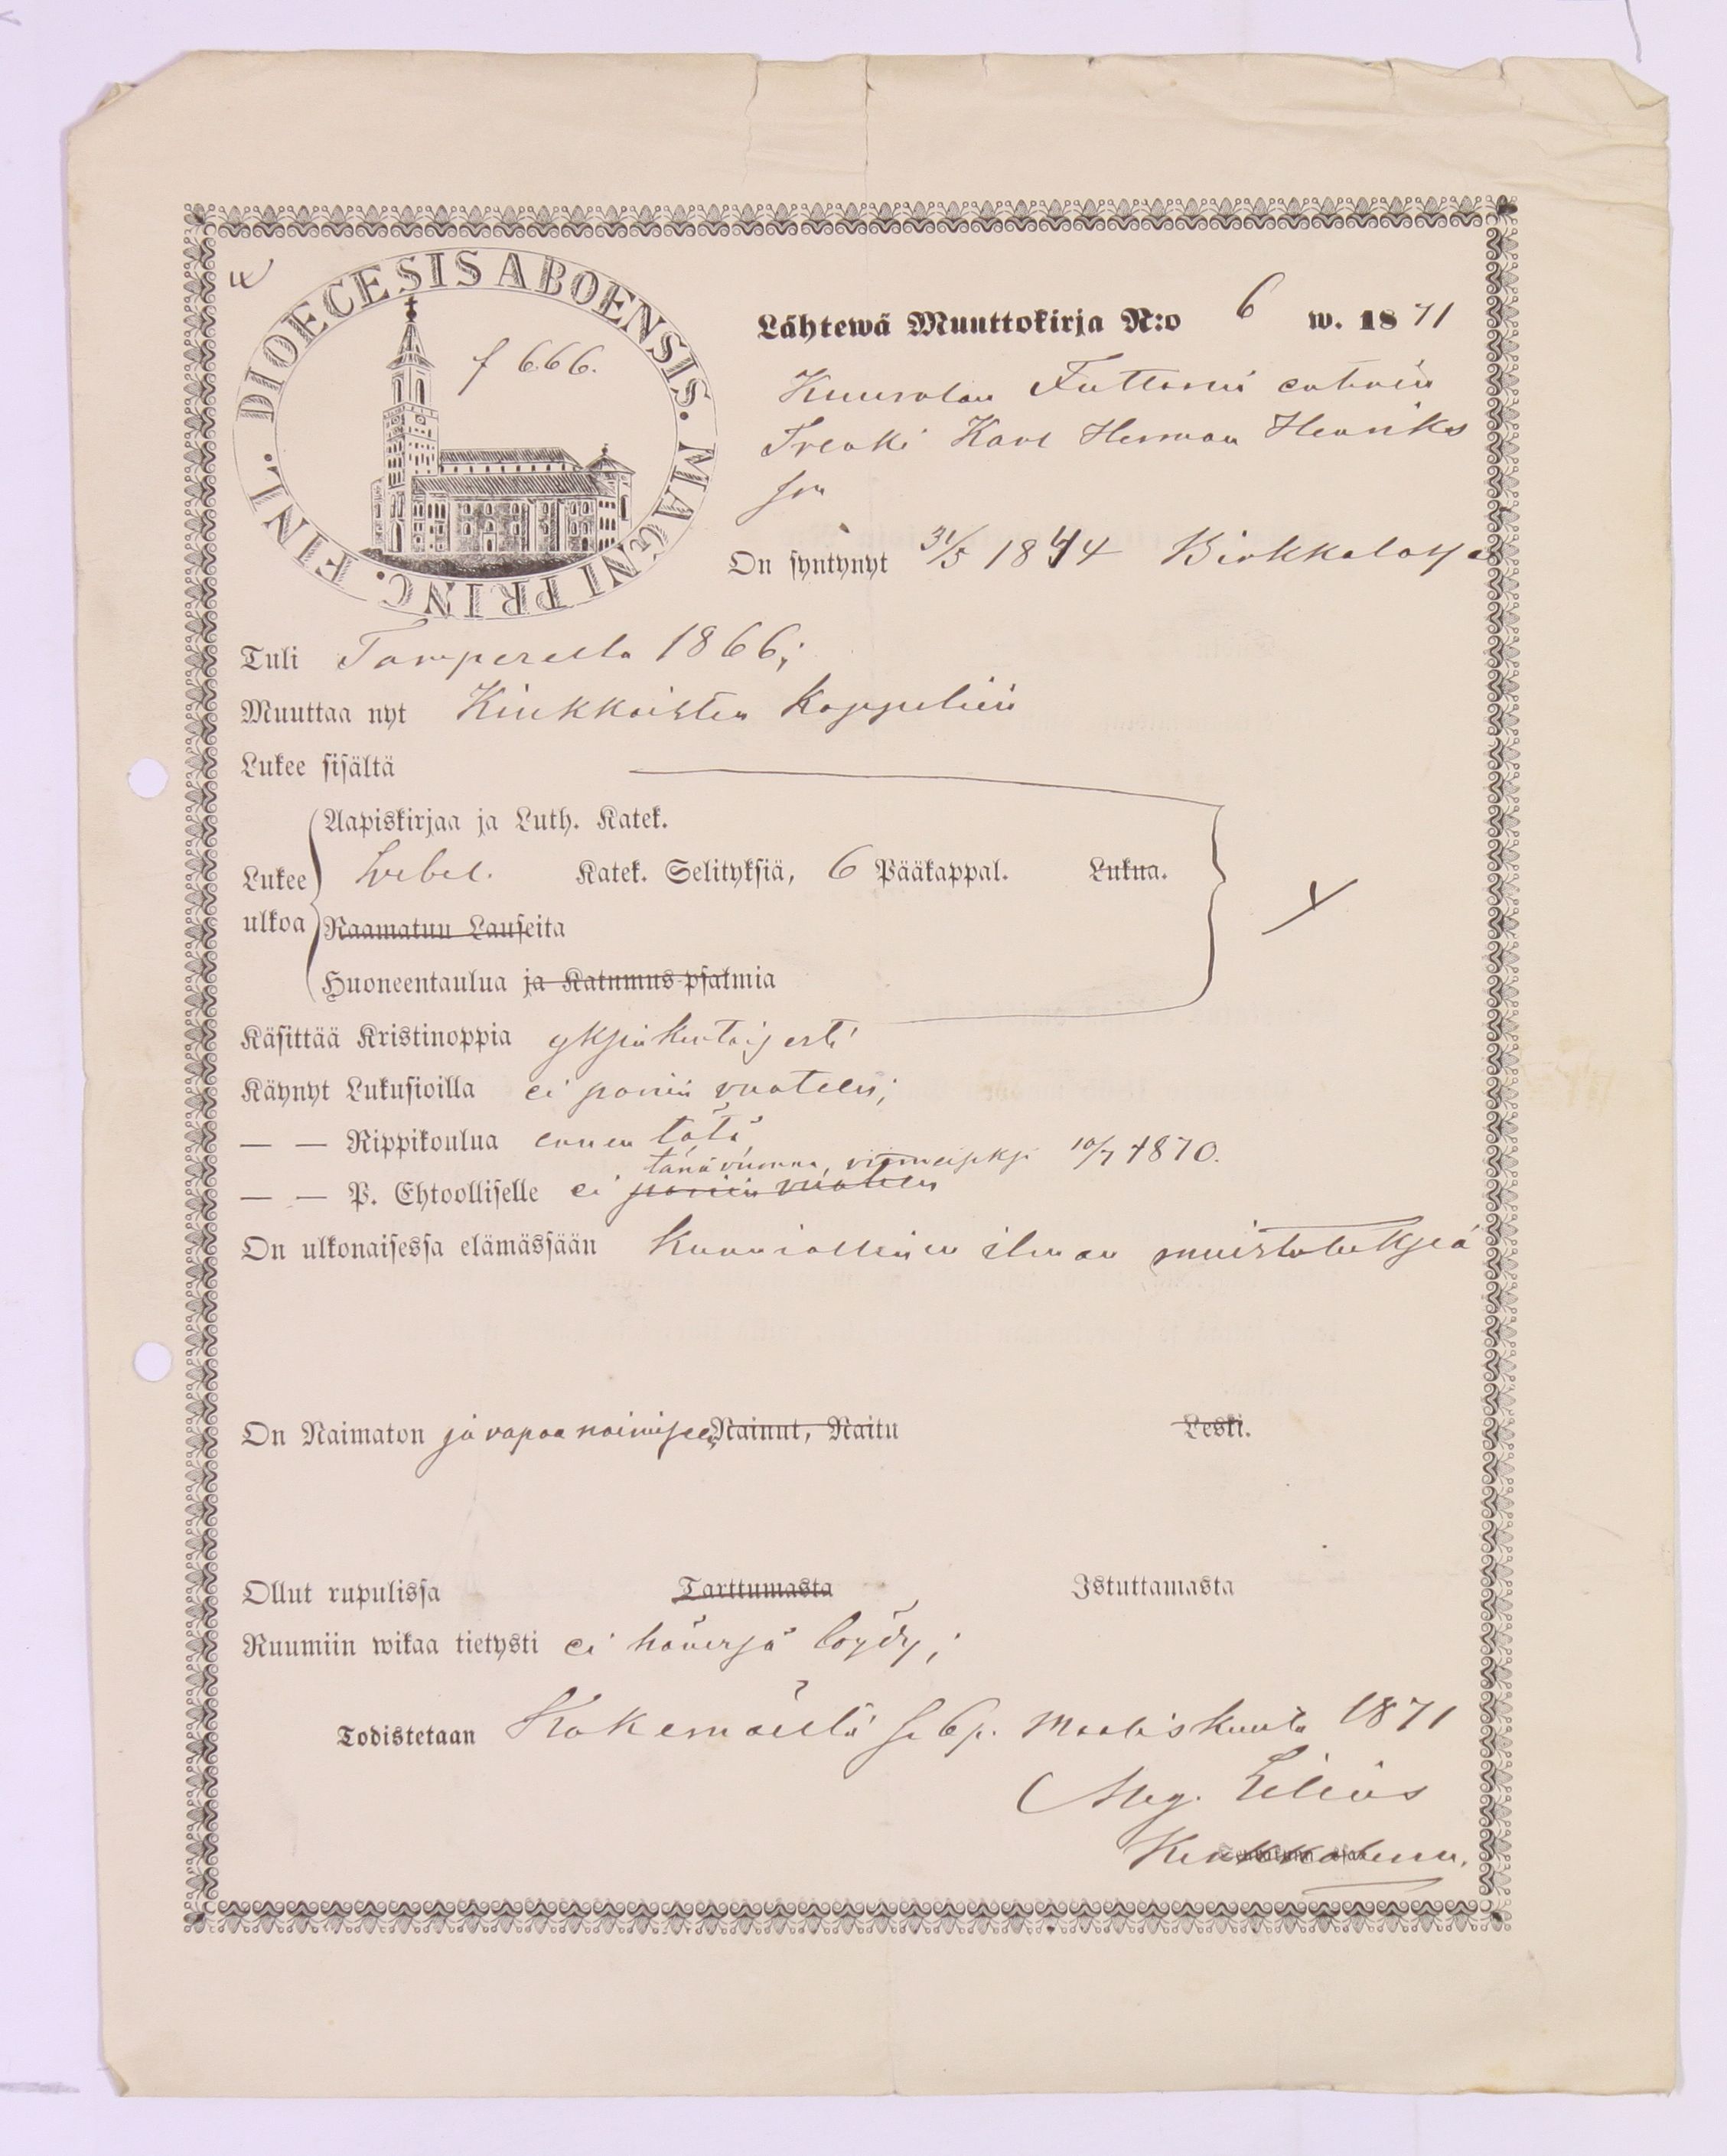 DIOECESIS ABOENSIS. MAGNI PRINC. FINL.
f 666.
Lähtewä Muuttokirja N:o 6 w. 1871
Karl Herman Henriks
son
On syntynyt 31/5 1844 Birkkalassa
Tuli Tampereelta 1866;
Muuttaa nyt Kiukkoisten kappeliin
Lukee sisältä
Aapiskirjaa ja Luth. Katek.
Lukee ulkoa Svebel. Katek. Selityksiä, 6 Pääkappal. Lukua.
Raamatun Lauseita
Huoneentaulua ja Katumus-psalmia
Käsittää Kristinoppia yksinkertaisesti
Käynyt Lukusioilla ei pariin vuoteen;
— — Rippikoulua ennen tätä
tänä vuonna, viimeiseksi 10/7 1870.
— — P. Ehtoolliselle ei pariin vuoteen
On ulkonaisessa elämässään kunniallinen ilman muistutuksia
On Naimaton ja vapaa naimiseen Nainut, Naitu Leski.
Ollut rupulissa Tarttumasta Istuttamasta
Ruumiin wikaa tietysti ei hänessä löydy;
Todistetaan Kokemäellä 6 p. Maaliskuuta 1871
Aug. Lilius
Kirkkoherra.